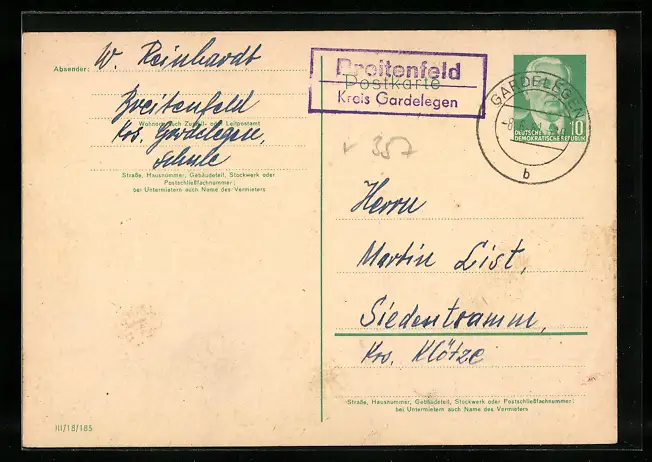 Absender: W. Reinhardt
Breitenfeld
Wohnort, auch Zustell- oder Leitpostamt
Krs. Gardelegen,
Schule
Straße, Hausnummer, Gebäudeteil, Stockwerk oder
Postschließfachnummer;
bei Untermietern auch Name des Vermieters
III/18/185
Breitenfeld
Postkarte
Kreis Gardelegen
357
GARDELEGEN
b
10
DEUTSCHE
DEMOKRATISCHE REPUBLIK
Herrn
Martin List,
Siedentramm,
Krs. Klötze
Straße, Hausnummer, Gebäudeteil, Stockwerk oder Postschließfachnummer;
bei Untermietern auch Name des Vermieters